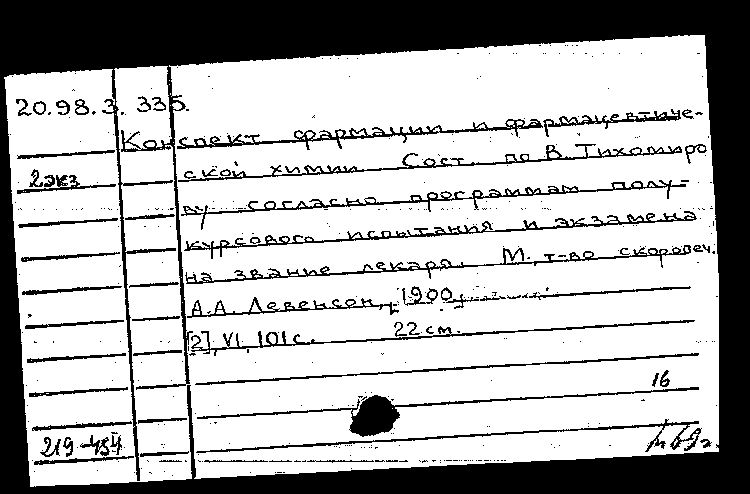 20.98.3. 335.
Конспект фармации и фармацевтиче-
2экз
ской химии. Сост. по В. Тихомиро
ву согласно программам полу-
курсового испытания и экзамена
на звание лекаря. М., т-во скоропеч.
А.А. Левенсон, 1900,
[2], VI, 101 с. 22 см.
16
219-454